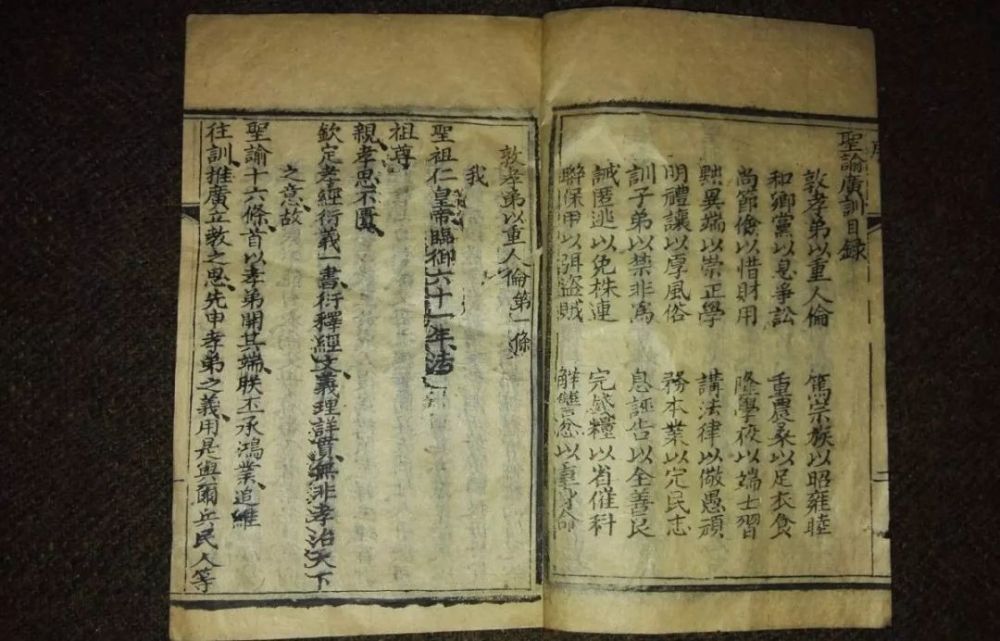 聖諭廣訓目錄
敦孝弟以重人倫 篤宗族以昭雍睦
和鄉黨以息爭訟 重農桑以足衣食
尚節儉以惜財用 隆學校以端士習
黜異端以崇正學 講法律以儆愚頑
明禮讓以厚風俗 務本業以定民志
訓子弟以禁非為 息誣告以全善良
誡匿逃以免株連 完錢糧以省催科
聯保甲以弭盜賊 解讐忿以重身命
敦孝弟以重人倫第一條
我
聖祖仁皇帝臨御六十一年法
祖尊
親孝思不匱
欽定孝經衍義一書衍釋經文義理詳貫無非孝治天下
之意故
聖諭十六條首以孝弟開其端朕丕承鴻業追維
往訓推廣立教之思先申孝弟之義用是與爾兵民人等